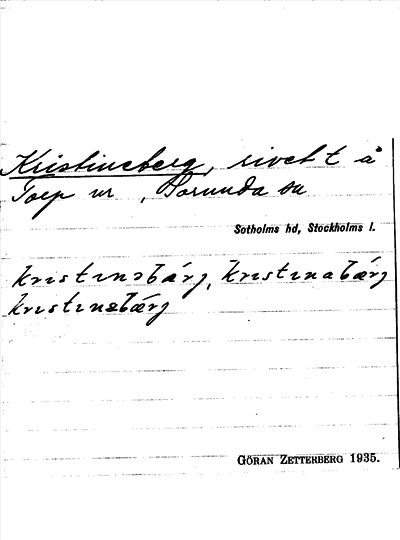 Kristineberg, rivet t å
Torp nr , Sorunda sn
Sotholms hd, Stockholms l.
kristinəbárj, kristinabǽrj
kristinəbǽrj
GÖRAN ZETTERBERG 1935.